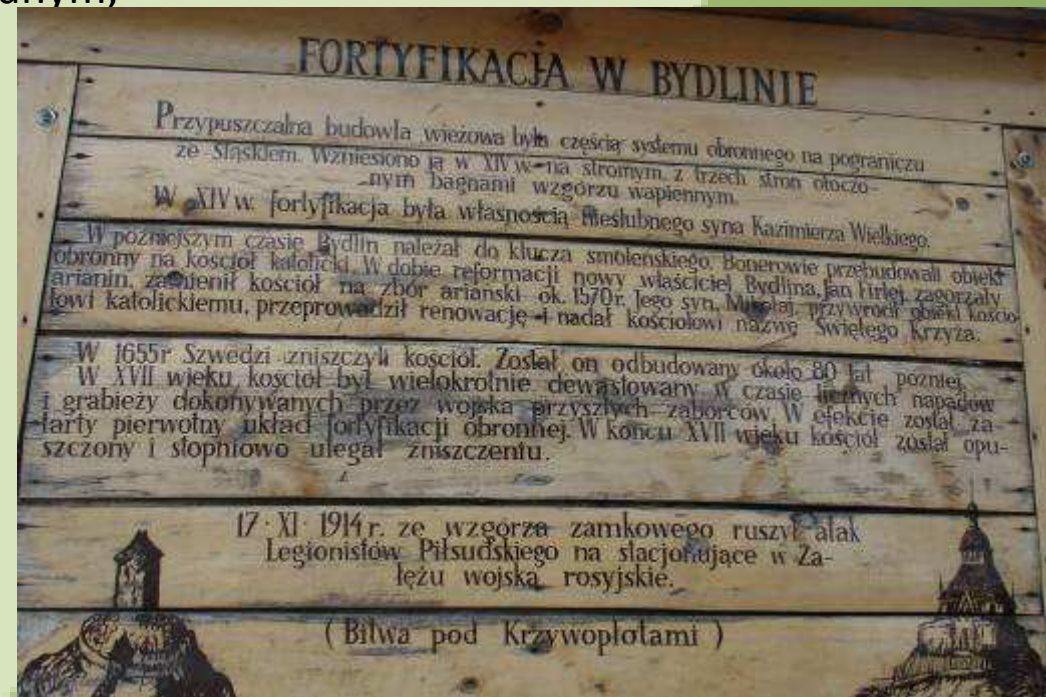 FORTYFIKACJA W BYDLINIE
Przypuszczalna budowla wieżowa była częścią systemu obronnego na pograniczu
ze Śląskiem. Wzniesiono ją w XIV w. na stromym, z trzech stron otoczo-
nym bagnami wzgórzu wapiennym.
W XIV w. fortyfikacja była własnością nieślubnego syna Kazimierza Wielkiego.
W późniejszym czasie Bydlin należał do klucza smoleńskiego. Bonerowie przebudowali obiekt
obronny na kościół katolicki. W dobie reformacji nowy właściciel Bydlina, Jan Firlej, zagorzały
arianin, zamienił kościół na zbór ariański ok. 1570 r. Jego syn, Mikołaj, przywrócił obiekt kościo
łowi katolickiemu, przeprowadził renowację i nadał kościołowi nazwę Świętego Krzyża.
W 1655r Szwedzi zniszczyli kościół. Został on odbudowany około 80 lat później.
W XVII wieku kościół był wielokrotnie dewastowany w czasie licznych napadów
i grabieży dokonywanych przez wojska przyszłych zaborców. W efekcie został za-
tarty pierwotny układ fortyfikacji obronnej. W końcu XVII wieku kościół został opu-
szczony i stopniowo ulegał zniszczeniu.
17·XI·1914 r. ze wzgórza zamkowego ruszył atak
Legionistów Piłsudskiego na stacjonujące w Za-
łężu wojska rosyjskie.
( Bitwa pod Krzywopłotami )